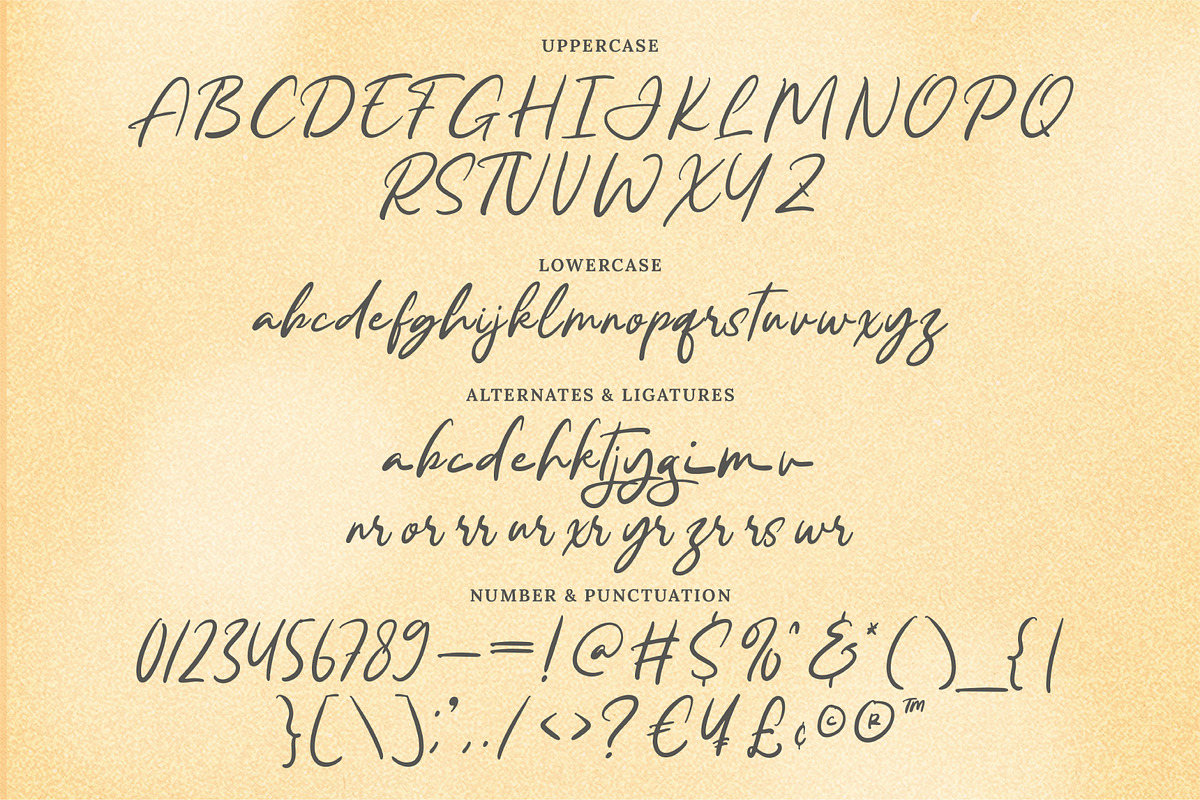 UPPERCASE
ABCDEFGHIJKLMNOPQ
RSTUVWXYZ
LOWERCASE
abcdefghijklmnopqrstuvwxyz
ALTERNATES & LIGATURES
abcdehktjygimv
nr or rr ur xr yr zr rs wr
NUMBER & PUNCTUATION
0123456789—=!@#$%^&*()_{|
}[\];',./<>?€¥£¢©®™